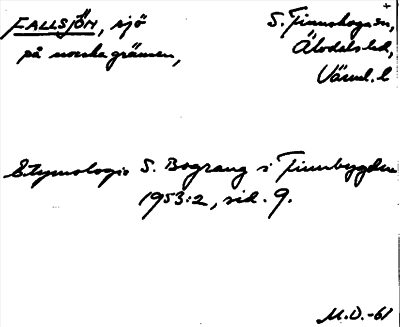 FALLSJÖN, sjö
på norska gränsen,
S. Finnskoga sn,
Älvdals hd,
Värml. l
Etymologi: S. Bograng i Finnbygden
1953:2, sid. 9.
M.O.-61